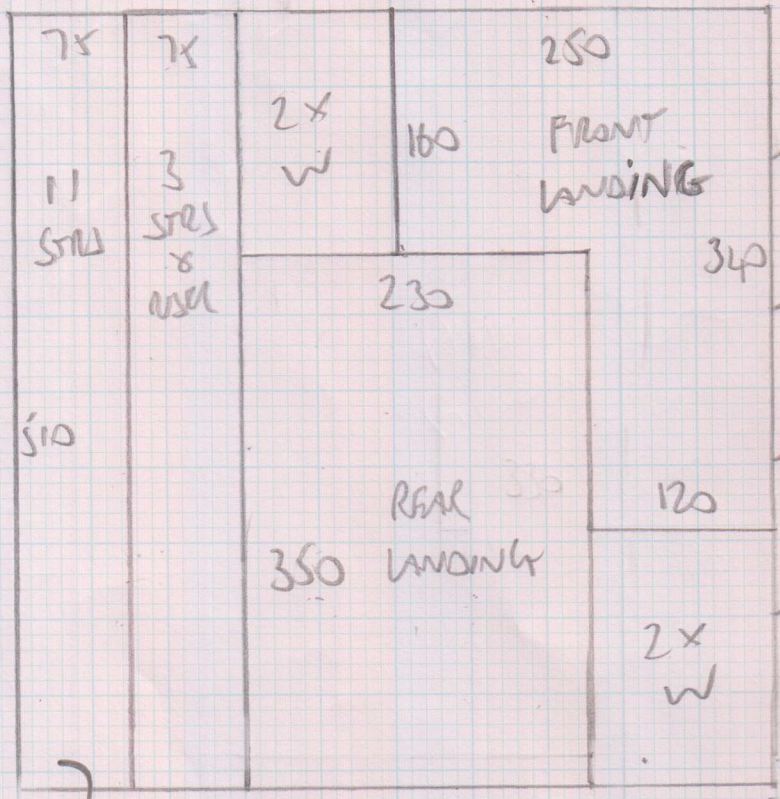 75
75
11
STRS
3
STRS
&
RISER
2X
W
250
160
FRONT
LANDING
340
230
510
REAR
LANDING
350
120
2X
W